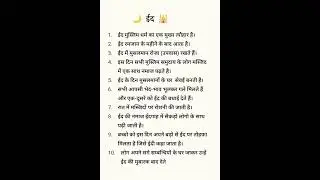 ईद
1. ईद मुस्लिम धर्म का एक मुख्य त्यौहार है।
2. ईद रमजान के महीने के बाद आता है।
3. ईद में मुसलमान रोजा (उपवास) रखते हैं।
4. इस दिन सभी मुस्लिम समुदाय के लोग मस्जिद
में एक-साथ नमाज पढ़ते है।
5. ईद के दिन मुसलमानों के घर सेवईं बनती है।
6. सभी आपसी भेद-भाव भूलकर गले मिलते हैं
और एक-दूसरे को ईद की बधाई देते हैं।
7. रात में मस्जिदों पर रोशनी की जाती है।
8. ईद की नमाज ईदगाह में सैकड़ों लोगो के साथ
पढ़ी जाती है।
9. बच्चों को इस दिन अपने बड़ों से ईद पर तोहफा
मिलता है जिसे ईदी कहा जाता है।
10. लोग अपने सगे सम्बन्धियों के घर जाकर उन्हें
ईद की मुबारक बाद देते